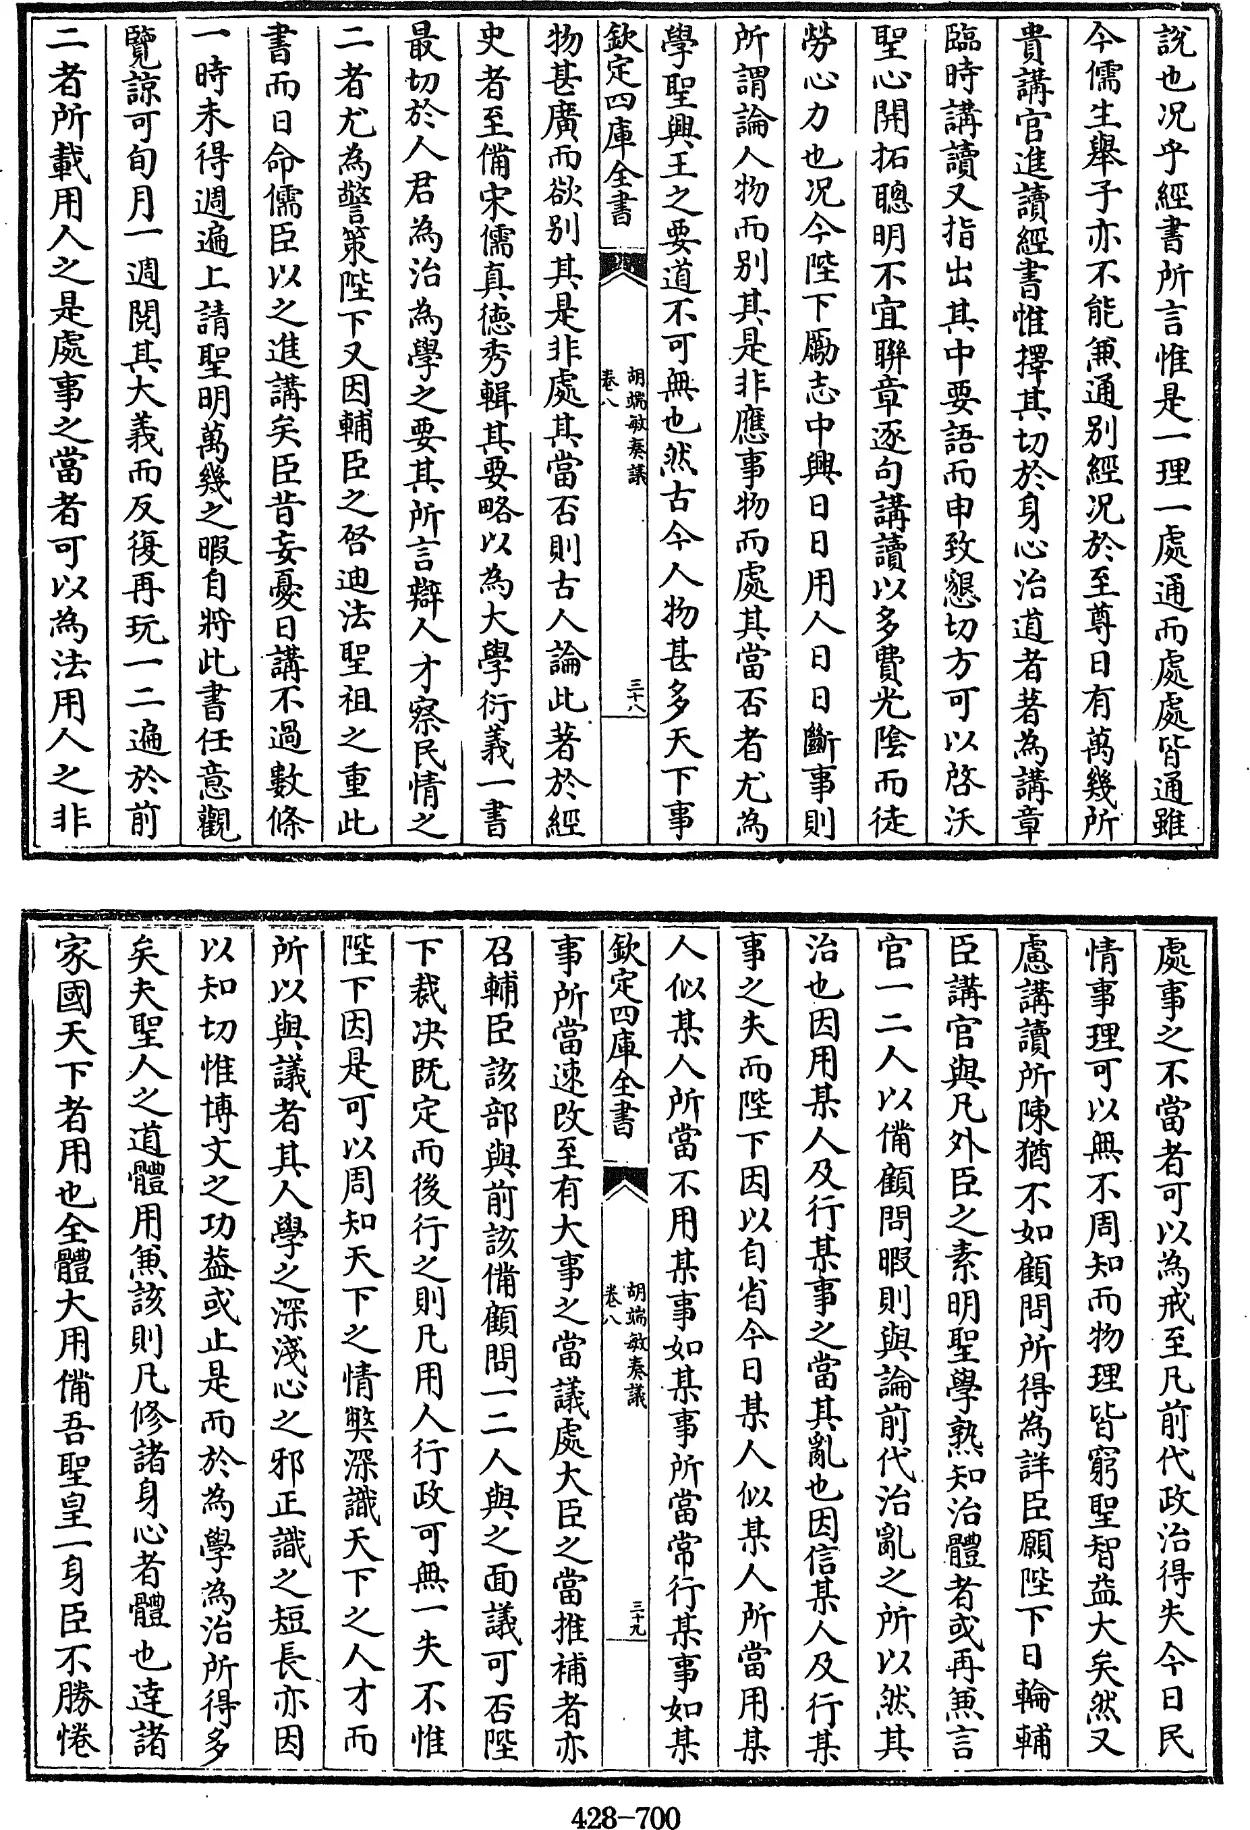 説也况乎經書所言惟是一理一處通而處處皆通雖
今儒生舉子亦不能兼通别經况於至尊日有萬幾所
貴講官進讀經書惟擇其切於身心治道者著為講章
臨時講讀又指出其中要語而申致懇切方可以啓沃
聖心開拓聰明不宜聨章逐句講讀以多費光陰而徒
勞心力也况今陛下勵志中興日日用人日日斷事則
所謂論人物而别其是非應事物而處其當否者尤為
學聖興王之要道不可無也然古今人物甚多天下事
欽定四庫全書
胡端敏奏議
卷八
三十八
物甚廣而欲别其是非處其當否則古人論此著於經
史者至備宋儒真徳秀輯其要略以為大學衍義一書
最切於人君為治為學之要其所言辯人才察民情之
二者尤為警策陛下又因輔臣之啓迪法聖祖之重此
書而日命儒臣以之進講矣臣昔妄憂日講不過數條
一時未得週遍上請聖明萬幾之暇自將此書任意觀
覽諒可旬月一週閱其大義而反復再玩一二遍於前
二者所載用人之是處事之當者可以為法用人之非
處事之不當者可以為戒至凡前代政治得失今日民
情事理可以無不周知而物理皆窮聖智益大矣然又
慮講讀所陳猶不如顧問所得為詳臣願陛下日輪輔
臣講官與凡外臣之素明聖學熟知治體者或再兼言
官一二人以備顧問暇則與論前代治亂之所以然其
治也因用某人及行某事之當其亂也因信某人及行某
事之失而陛下因以自省今日某人似某人所當用某
人似某人所當不用某事如某事所當常行某事如某
欽定四庫全書
胡端敏奏議
卷八
三十九
事所當速改至有大事之當議處大臣之當推補者亦
召輔臣該部與前該備顧問一二人與之面議可否陛
下裁决既定而後行之則凡用人行政可無一失不惟
陛下因是可以周知天下之情弊深識天下之人才而
所以與議者其人學之深淺心之邪正識之短長亦因
以知切惟博文之功益或止是而於為學為治所得多
矣夫聖人之道體用兼該則凡修諸身心者體也達諸
家國天下者用也全體大用備吾聖皇一身臣不勝惓
428-700